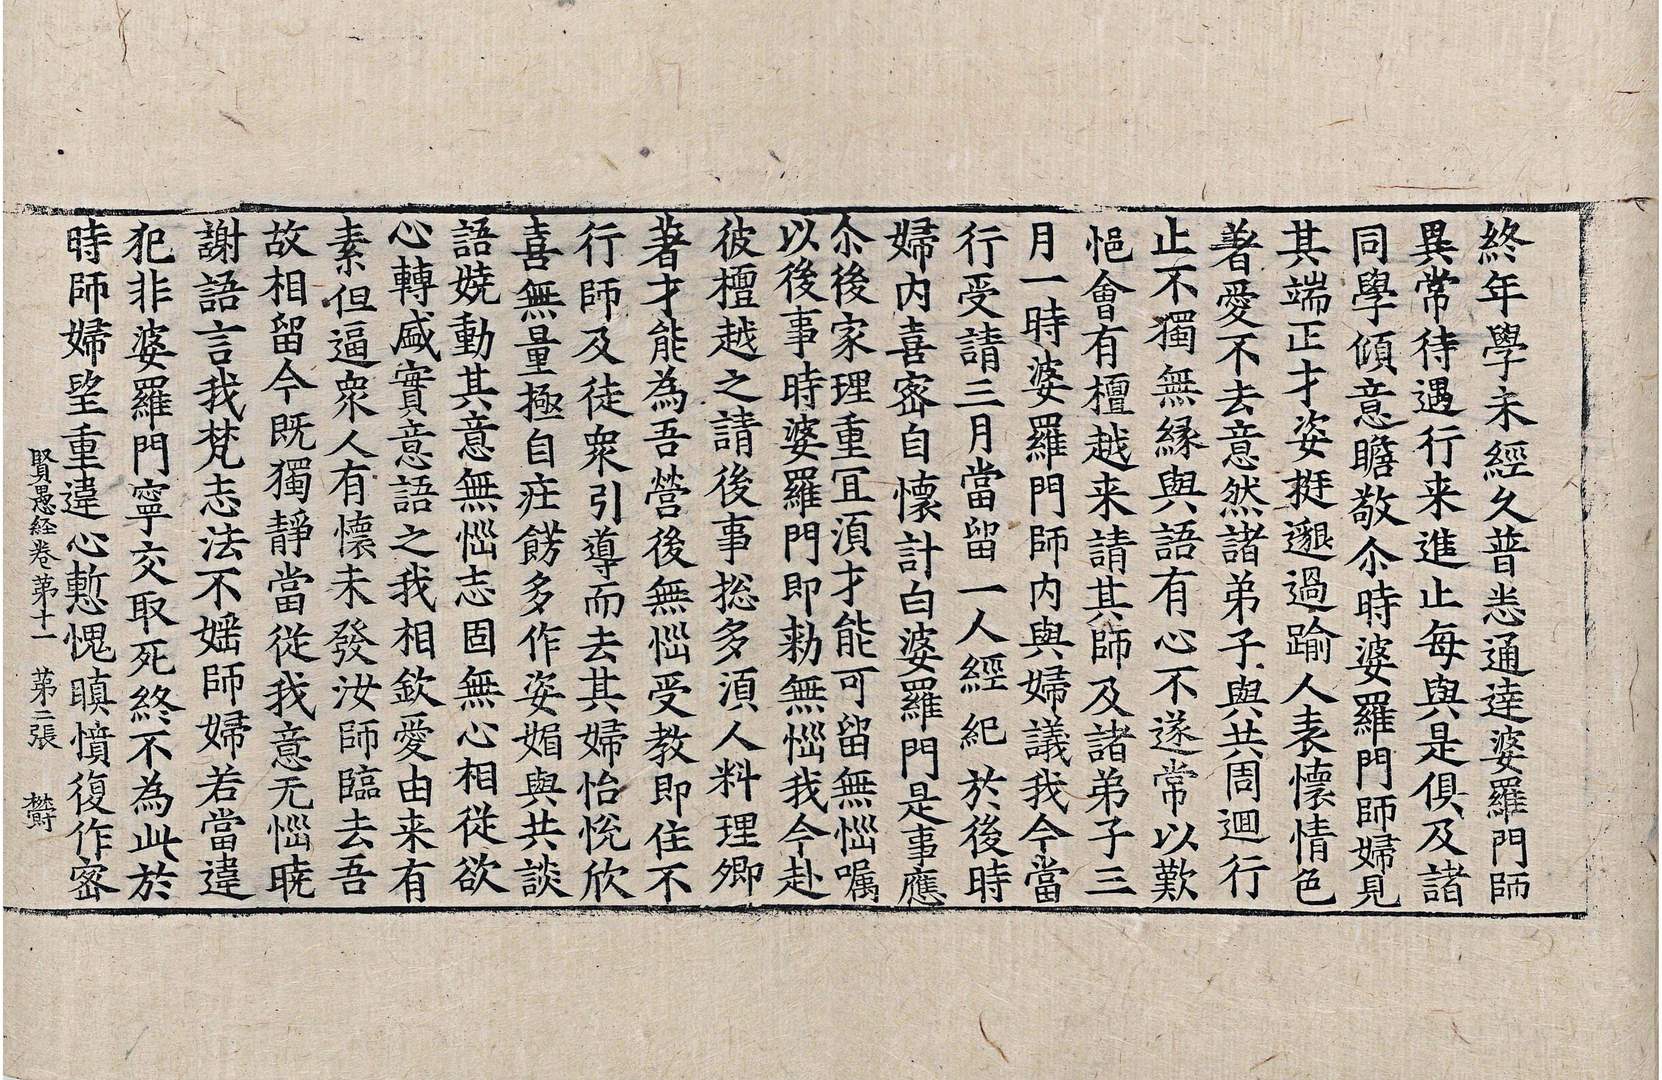 終年學未經久普悉通達婆羅門師
異常待遇行来進止每與是俱及諸
同學傾意瞻敬尒時婆羅門師婦見
其端正才姿挺邈過踰人表懷情色
著愛不去意然諸弟子與共周迴行
止不獨無緣與語有心不遂常以歎
悒會有檀越来請其師及諸弟子三
月一時婆羅門師內與婦議我今當
行受請三月當留一人經紀於後時
婦內喜密自懷計白婆羅門是事應
尒後家理重冝湏才能可留無惱嘱
以後事時婆羅門即勑無惱我今赴
彼檀越之請後事揔多湏人料理卿
著才能為吾營後無惱受教即住不
行師及徒衆引導而去其婦怡悅欣
喜無量極自疘餝多作姿媚與共談
語嬈動其意無惱志固無心相從欲
心轉盛實意語之我相欽愛由来有
素但逼衆人有懷未發汝師臨去吾
故相留今既獨靜當從我意无惱曉
謝語言我梵志法不婬師婦若當違
犯非婆羅門寧交取死終不為此於
時師婦望重違心慙愧瞋憤復作密
賢愚經卷第十一 第二張 欝